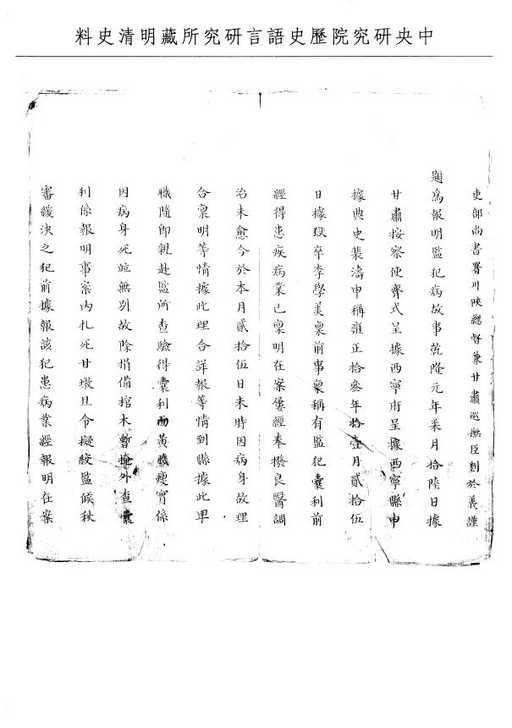 中央研究院歷史語言研究所藏明清史料
吏部尚書署川陝總督兼甘肅巡撫臣劉於義謹
題為報明監犯病故事乾隆元年柒月拾陸日據
甘肅按察使齊式呈據西寧府呈據西寧縣申
據典史裴濤申稱雍正拾叁年拾壹月貳拾伍
日據獄卒李學美稟前事稟稱有監犯囊利前
經得患疾病業已稟明在案屢經奉撥良醫調
治未愈今於本月貳拾伍日未時因病身故理
合稟明等情據此理合詳報等情到縣據此卑
職隨即親赴監所查驗得囊利面黃瘦實係
因病身死並無別故除捐備棺木外查囊
利係報明事案內扎死甘墩旦令擬絞監候秋
審緩決之犯前據報該犯患病業經報明在案